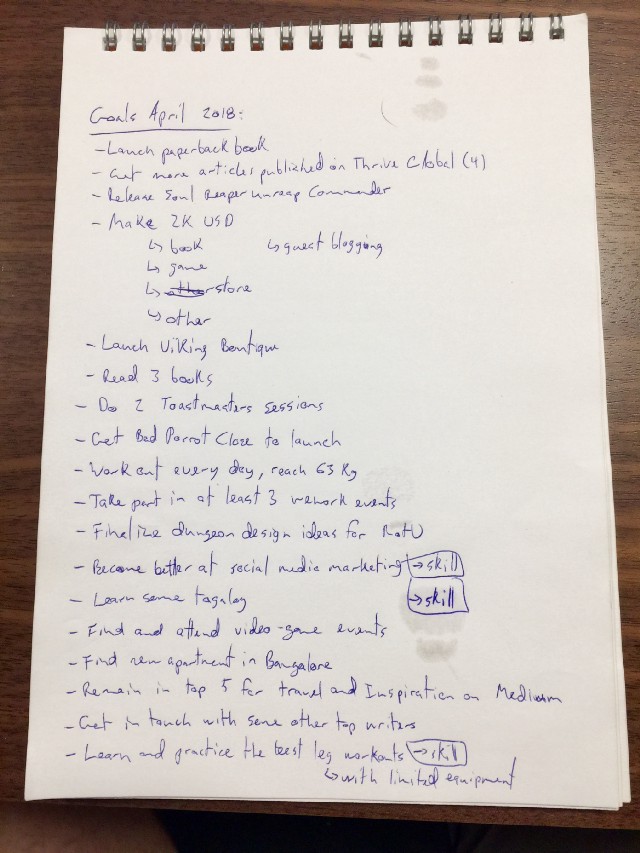 Goals April 2018:
- Launch paperback book
- Get more articles published on Thrive Global (4)
- Release Soul Reaper Unreap Commander
- Make 2K USD
↳ book ↳ guest blogging
↳ game
↳ store
↳ other
- Launch Viking Boutique
- Read 3 books
- Do 2 Toastmasters sessions
- Get Bad Parrot Close to launch
- Work out every day, reach 63 Kg
- Take part in at least 3 wework events
- Finalize dungeon design ideas for RotU
- Become better at social media marketing → skill
- Learn some tagalog → skill
- Find and attend video-game events
- Find new apartment in Bangalore
- Remain in top 5 for travel and Inspiration on Medium
- Get in touch with some other top writers
- Learn and practice the best leg workouts → skill
↳ with limited equipment